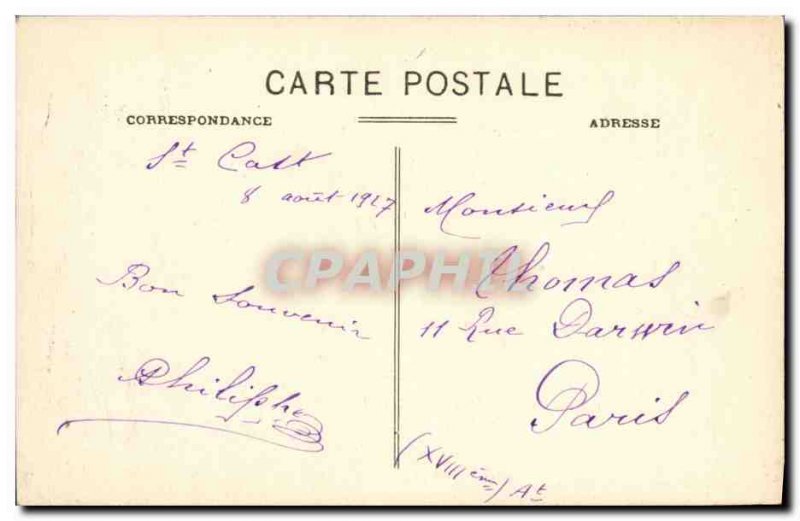 CARTE POSTALE
CORRESPONDANCE
ADRESSE
St Cast
8 août 1927
Bon Souvenir
Philippe
Monsieur
Thomas
11 Rue Darwin
Paris
(XVIIIème) At
CPAPHIL